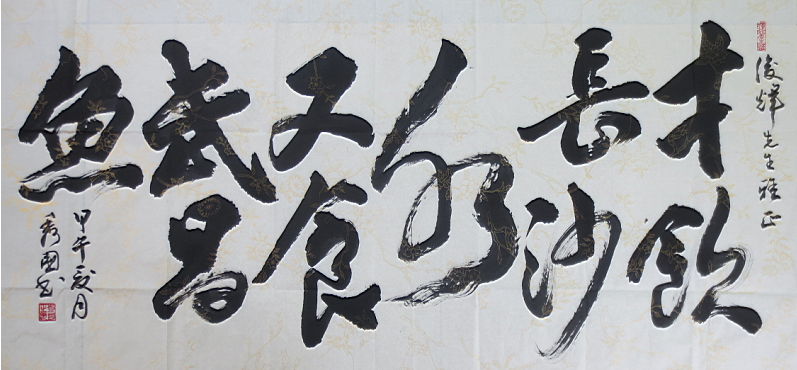 俊輝先生雅正
才飲
長沙
水
又食
武昌
魚
甲午夏月
秀國書